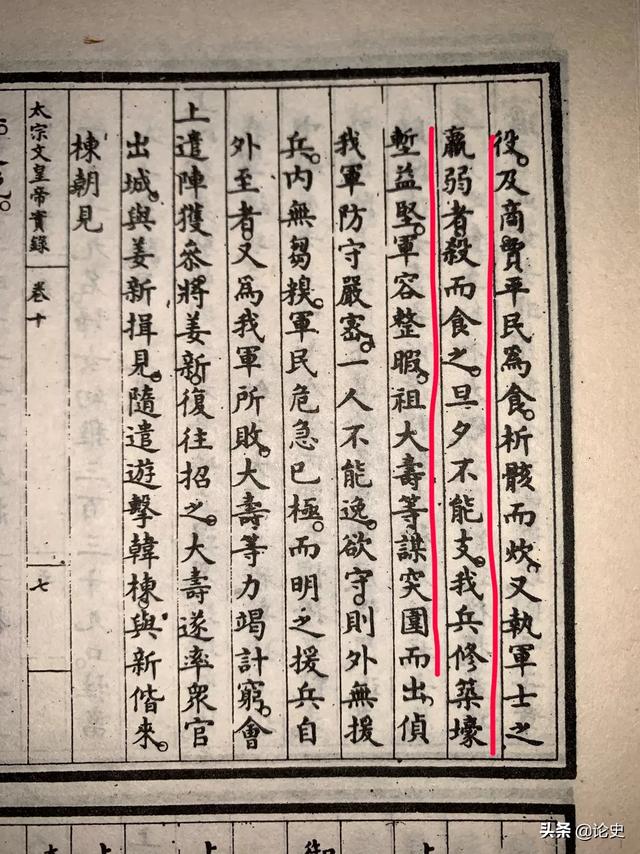 役。及商賈平民為食。析骸而炊。又執軍士之
羸弱者殺而食之。旦夕不能支。我兵修築壕
塹益堅。軍容整暇。祖大壽等謀突圍而出。偵
我軍防守嚴密。一人不能逸。欲守。則外無援
兵。內無芻糗。軍民危急已極。而明之援兵自
外至者。又為我軍所敗。大壽等力竭計窮。會
上遣陣獲叅將姜新。復往招之。大壽遂率眾官
出城。與姜新揖見。隨遣遊擊韓棟。與新偕來。
棟朝見
太宗文皇帝實錄 卷十
七
头条 @论史